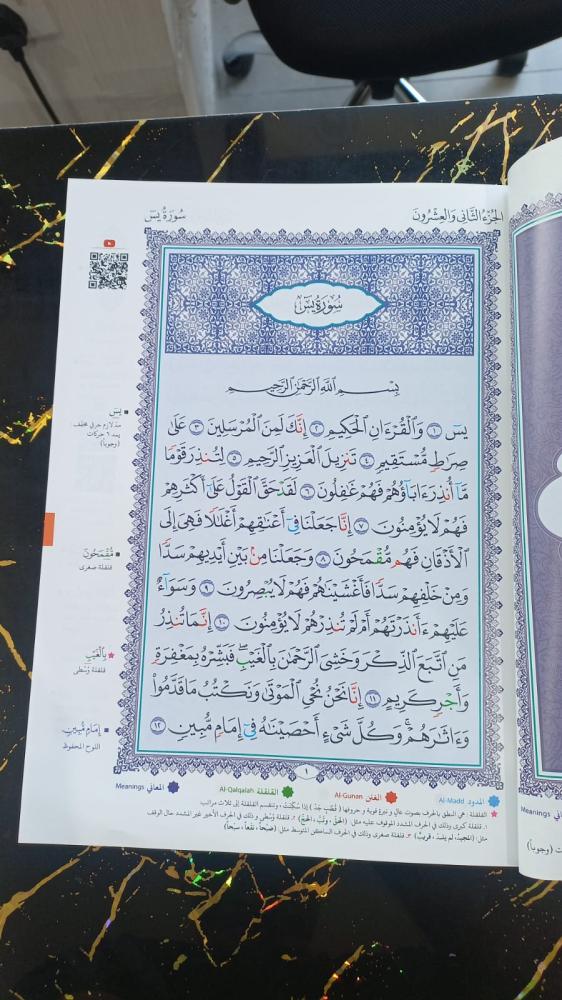 الجُزْءُ الثَّانِي وَالعِشْرُونَ
سُورَةُ يسٓ
سُورَةُ يسٓ
بِسْمِ اللَّهِ الرَّحْمَٰنِ الرَّحِيمِ
يسٓ ١ وَالْقُرْءَانِ الْحَكِيمِ ٢ إِنَّكَ لَمِنَ الْمُرْسَلِينَ ٣ عَلَىٰ
صِرَٰطٍ مُّسْتَقِيمٍ ٤ تَنزِيلَ الْعَزِيزِ الرَّحِيمِ ٥ لِتُنذِرَ قَوْمًا
مَّآ أُنذِرَ ءَابَآؤُهُمْ فَهُمْ غَٰفِلُونَ ٦ لَقَدْ حَقَّ الْقَوْلُ عَلَىٰٓ أَكْثَرِهِمْ
فَهُمْ لَا يُؤْمِنُونَ ٧ إِنَّا جَعَلْنَا فِىٓ أَعْنَٰقِهِمْ أَغْلَٰلًا فَهِىَ إِلَى
الْأَذْقَانِ فَهُم مُّقْمَحُونَ ٨ وَجَعَلْنَا مِنۢ بَيْنِ أَيْدِيهِمْ سَدًّا
وَمِنْ خَلْفِهِمْ سَدًّا فَأَغْشَيْنَٰهُمْ فَهُمْ لَا يُبْصِرُونَ ٩ وَسَوَآءٌ
عَلَيْهِمْ ءَأَنذَرْتَهُمْ أَمْ لَمْ تُنذِرْهُمْ لَا يُؤْمِنُونَ ١٠ إِنَّمَا تُنذِرُ
مَنِ اتَّبَعَ الذِّكْرَ وَخَشِىَ الرَّحْمَٰنَ بِالْغَيْبِ ۖ فَبَشِّرْهُ بِمَغْفِرَةٍ
وَأَجْرٍ كَرِيمٍ ١١ إِنَّا نَحْنُ نُحْىِ الْمَوْتَىٰ وَنَكْتُبُ مَا قَدَّمُوا۟
وَءَاثَٰرَهُمْ ۚ وَكُلَّ شَىْءٍ أَحْصَيْنَٰهُ فِىٓ إِمَامٍ مُّبِينٍ ١٢
يسٓ
مد لازم حرفي مخفف
يمد ٦ حركات
(وجوباً)
مُّقْمَحُونَ
قلقلة صغرى
بِالْغَيْبِ
قلقلة وُسْطى
إِمَامٍ مُّبِينٍ
اللوح المحفوظ
١
المدود Al-Madd
الغنن Al-Gunan
القلقلة Al-Qalqalah
المعاني Meanings
القلقلة: هي النطق بالحرف بصوت عالٍ ونبرة قوية و حروفها (قُطْب جَدّ) إذا سُكِّنَتْ، وتنقسم القلقلة إلى ثلاث مراتب
١. قلقلة كبرى وذلك في الحرف المشدد الموقوف عليه مثل: (الحقّ، وتبّ، الحجّ) ٢. قلقلة وُسْطى وذلك في الحرف الأخير غير المشدد حال الوقف
مثل: (المجيدْ، لم يلدْ، قريبْ) ٣. قلقلة صغرى وذلك في الحرف الساكن المتوسط مثل (صُبْحاً، نَقْعاً، سَبْحاً)
Meanings
(وجوباً)